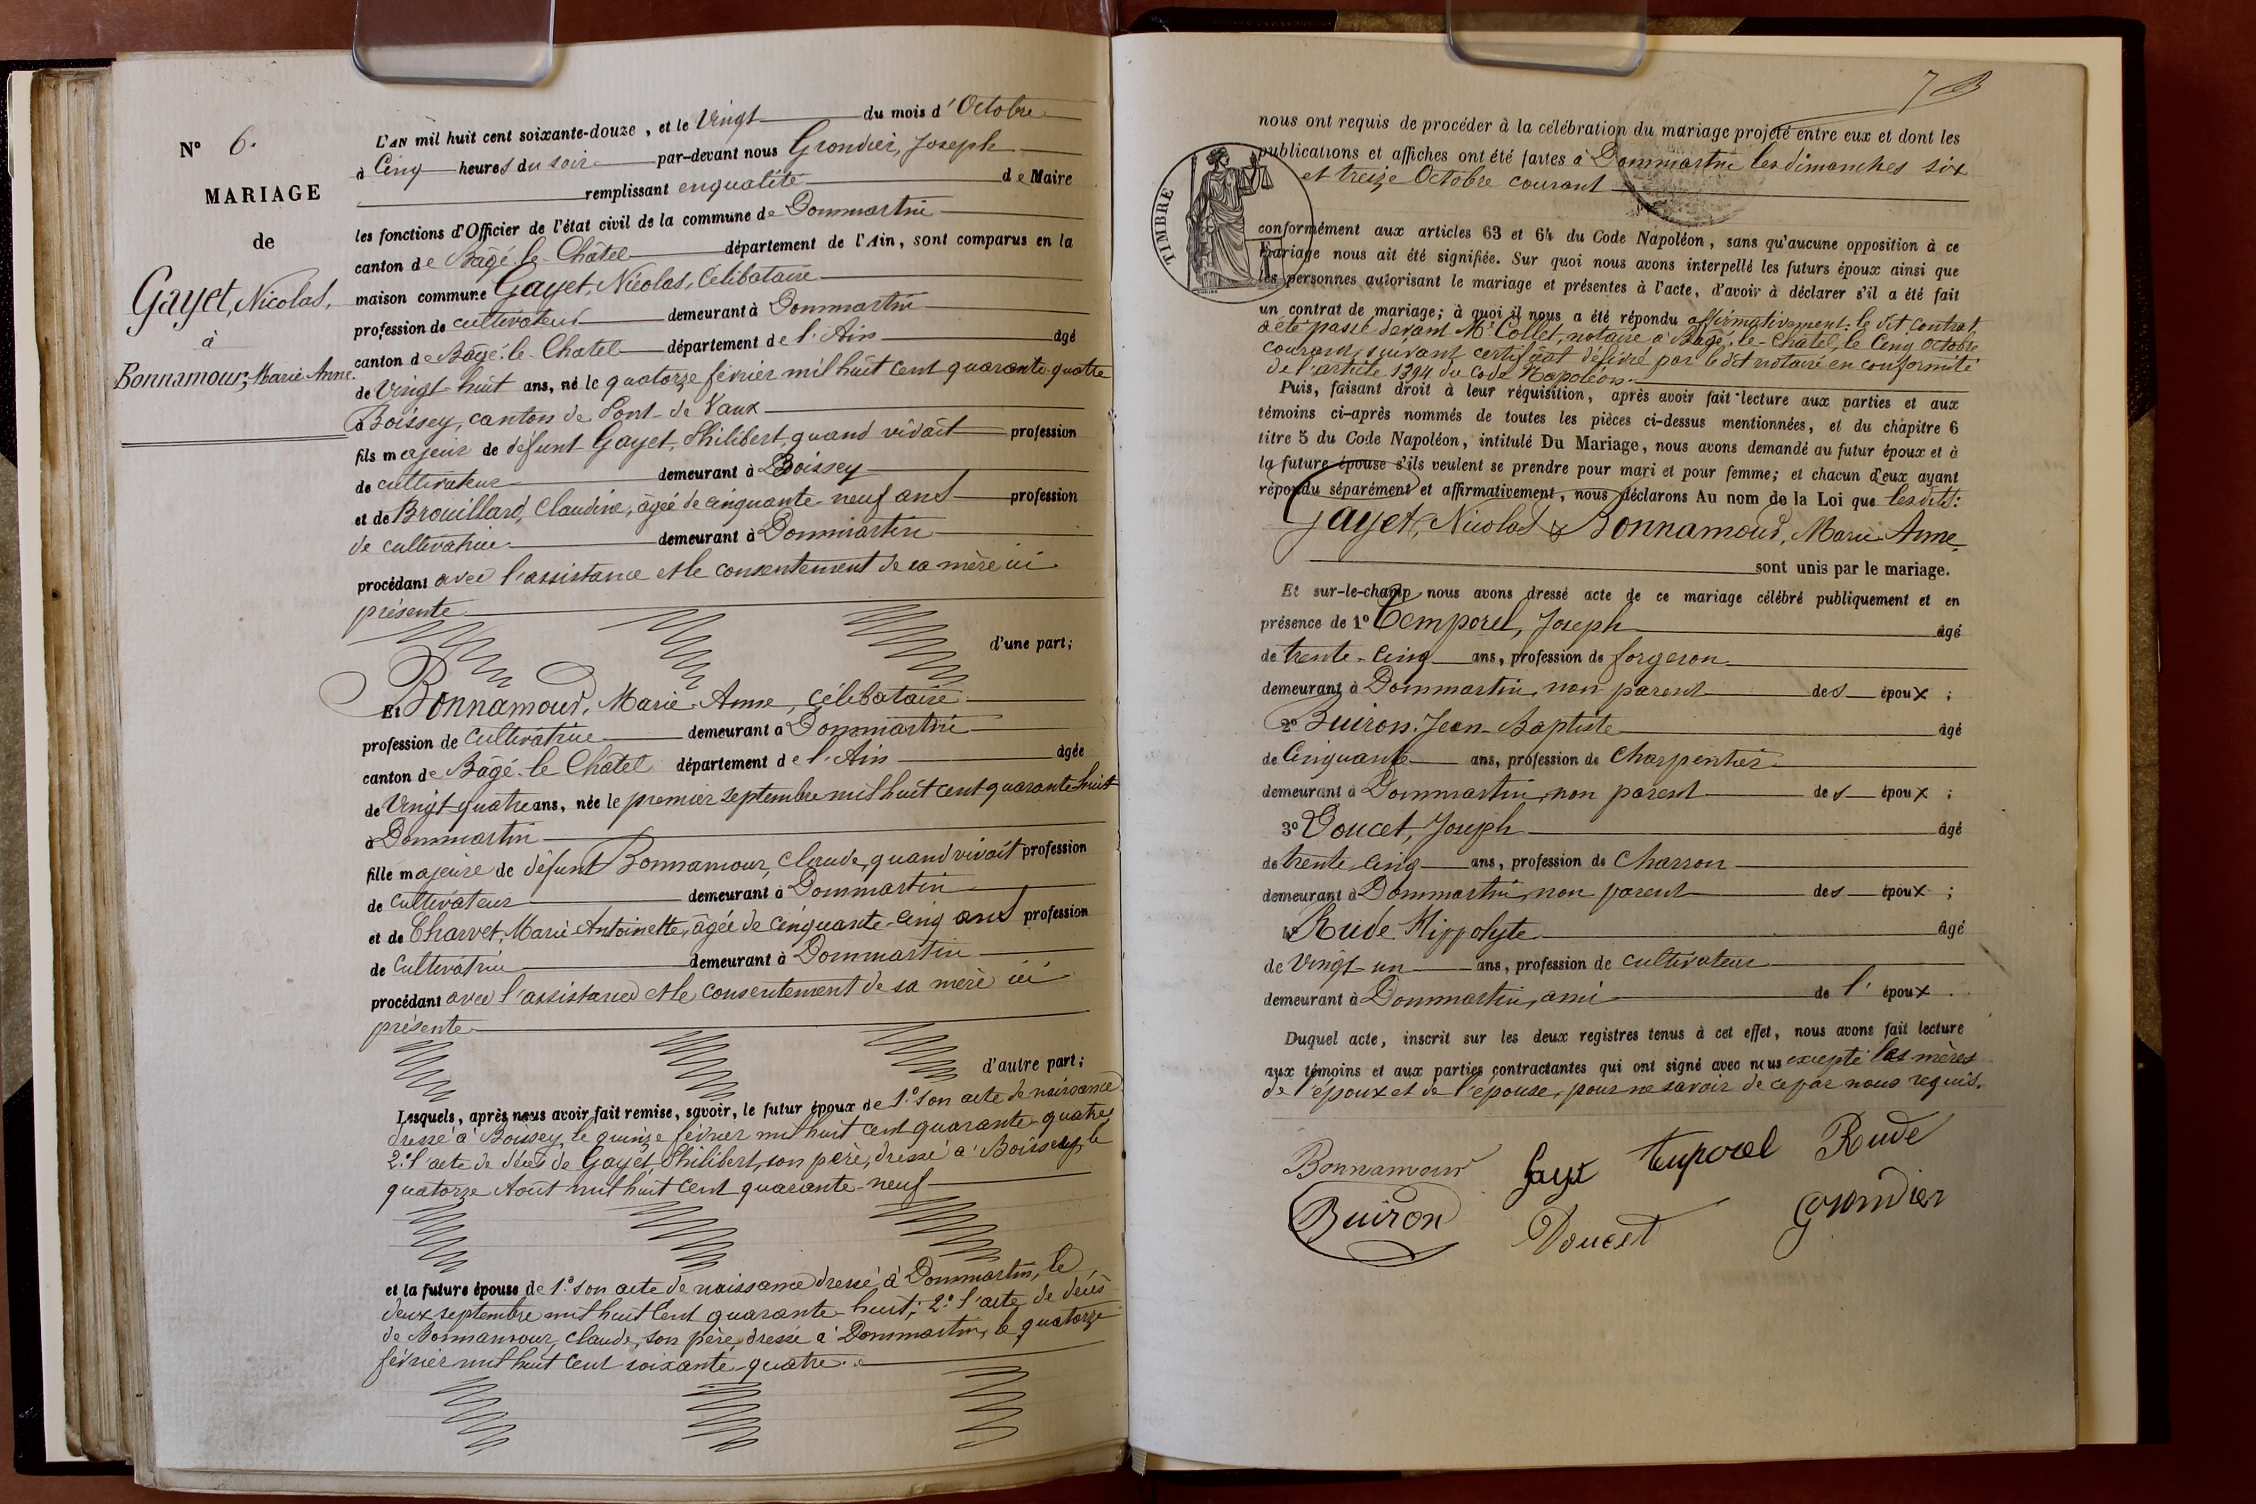 N° 6.
MARIAGE
de
Gayet, Nicolas,
à
Bonnamour, Marie Anne.
L'AN mil huit cent soixante-douze, et le Vingt du mois d'Octobre
à Cinq heures du soir par-devant nous Grondier, Joseph
remplissant en qualité de Maire
les fonctions d'Officier de l'état civil de la commune de Dommartin
canton de Bâgé-le-Châtel département de l'Ain, sont comparus en la
maison commune Gayet, Nicolas, Célibataire
profession de cultivateur demeurant à Dommartin
canton de Bâgé-le-Chatel département de l'Ain âgé
de Vingt-huit ans, né le quatorze février mil huit cent quarante quatre
à Boissey, canton de Pont-de-Vaux
fils majeur de défunt Gayet, Philibert, quand vivait profession
de cultivateur demeurant à Boissey
et de Brouillard, Claudine, âgée de cinquante-neuf ans profession
de cultivatrice demeurant à Dommartin
procédant avec l'assistance et le consentement de sa mère ici
présente
d'une part;
Et Bonnamour, Marie-Anne, célibataire
profession de cultivatrice demeurant à Dommartin
canton de Bâgé-le Châtel département de l'Ain âgée
de Vingt quatre ans, née le premier septembre mil huit cent quarante-huit
à Dommartin
fille majeure de défunt Bonnamour, Claude, quand vivait profession
de cultivateur demeurant à Dommartin
et de Charvet, Marie-Antoinette, âgée de cinquante-cinq ans profession
de cultivatrice demeurant à Dommartin
procédant avec l'assistance et le consentement de sa mère ici
présente
d'autre part;
Lesquels, après nous avoir fait remise, savoir, le futur époux de 1° son acte de naissance
dressé à Boissey, le quinze février mil huit cent quarante-quatre,
2° l'acte de décès de Gayet, Philibert, son père, dressé à Boissey, le
quatorze Août mil huit cent quarante-neuf
et la future épouse de 1° son acte de naissance dressé à Dommartin, le
deux septembre mil huit cent quarante-huit; 2° l'acte de décès
de Bonnamour, Claude, son père, dressé à Dommartin, le quatorze
février mil huit cent soixante-quatre.
7
nous ont requis de procéder à la célébration du mariage projeté entre eux et dont les
publications et affiches ont été faites à Dommartin les dimanches six
et treize Octobre courant
TIMBRE
conformément aux articles 63 et 64 du Code Napoléon, sans qu'aucune opposition à ce
mariage nous ait été signifiée. Sur quoi nous avons interpellé les futurs époux ainsi que
les personnes autorisant le mariage et présentes à l'acte, d'avoir à déclarer s'il a été fait
un contrat de mariage; à quoi il nous a été répondu affirmativement: le dit contrat,
a été passé devant Me Collet, notaire à Bâgé-le-Chatel, le Cinq Octobre
courant, suivant certificat délivré par le dit notaire en conformité
de l'article 1394 du Code Napoléon.
Puis, faisant droit à leur réquisition, après avoir fait lecture aux parties et aux
témoins ci-après nommés de toutes les pièces ci-dessus mentionnées, et du chapitre 6
titre 5 du Code Napoléon, intitulé Du Mariage, nous avons demandé au futur époux et à
la future épouse s'ils veulent se prendre pour mari et pour femme; et chacun d'eux ayant
répondu séparément et affirmativement, nous déclarons Au nom de la Loi que les dits:
Gayet, Nicolas & Bonnamour, Marie-Anne,
sont unis par le mariage.
Et sur-le-champ nous avons dressé acte de ce mariage célébré publiquement et en
présence de 1° Temporel, Joseph âgé
de trente-cinq ans, profession de forgeron
demeurant à Dommartin, non parent des époux;
2° Buiron, Jean-Baptiste âgé
de Cinquante ans, profession de Charpentier
demeurant à Dommartin, non parent des époux;
3° Doucet, Joseph âgé
de trente cinq ans, profession de Charron
demeurant à Dommartin, non parent des époux;
4° Rude Hippolyte âgé
de Vingt-un ans, profession de cultivateur
demeurant à Dommartin, ami de l'époux.
Duquel acte, inscrit sur les deux registres tenus à cet effet, nous avons fait lecture
aux témoins et aux parties contractantes qui ont signé avec nous excepté les mères
de l'époux et de l'épouse, pour ne savoir de ce par nous requis.
Bonnamour Gayet temporel Rude
Buiron Doucet Grondier